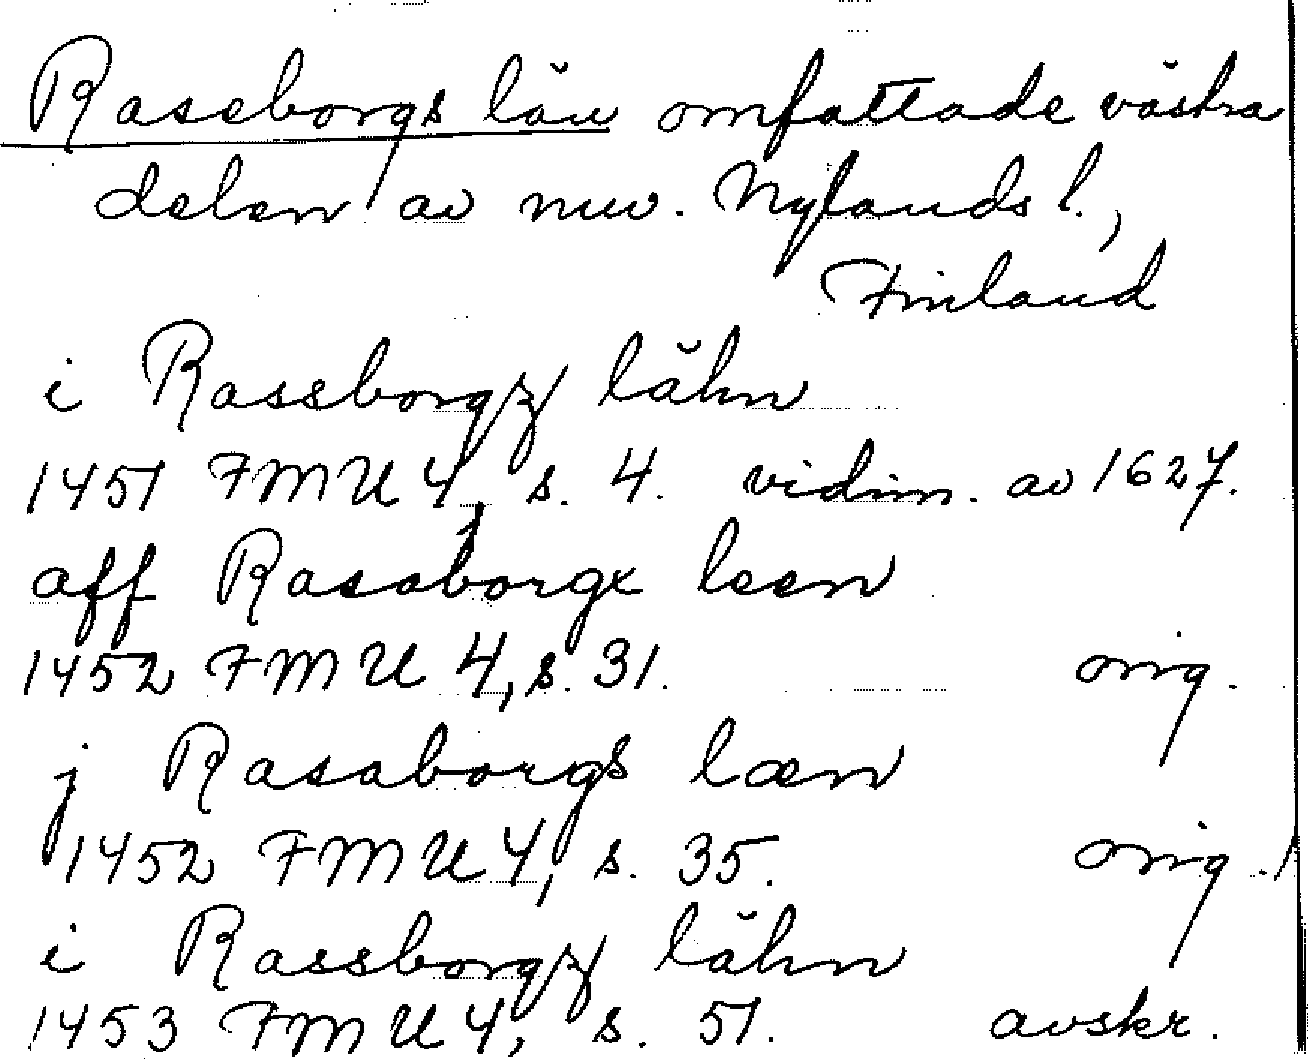 Raseborgs län omfattade västra
delen av nuv. Nylands l.,
Finland
i Rassborgz lähn
1451 FMU 4, s. 4. vidim. av 1627.
aff Rasaborgx leen
1452 FMU 4, s. 31. orig.
j Rasaborgs læn
1452 FMU 4, s. 35. orig.
i Rassborgz lähn
1453 FMU 4, s. 51. avskr.